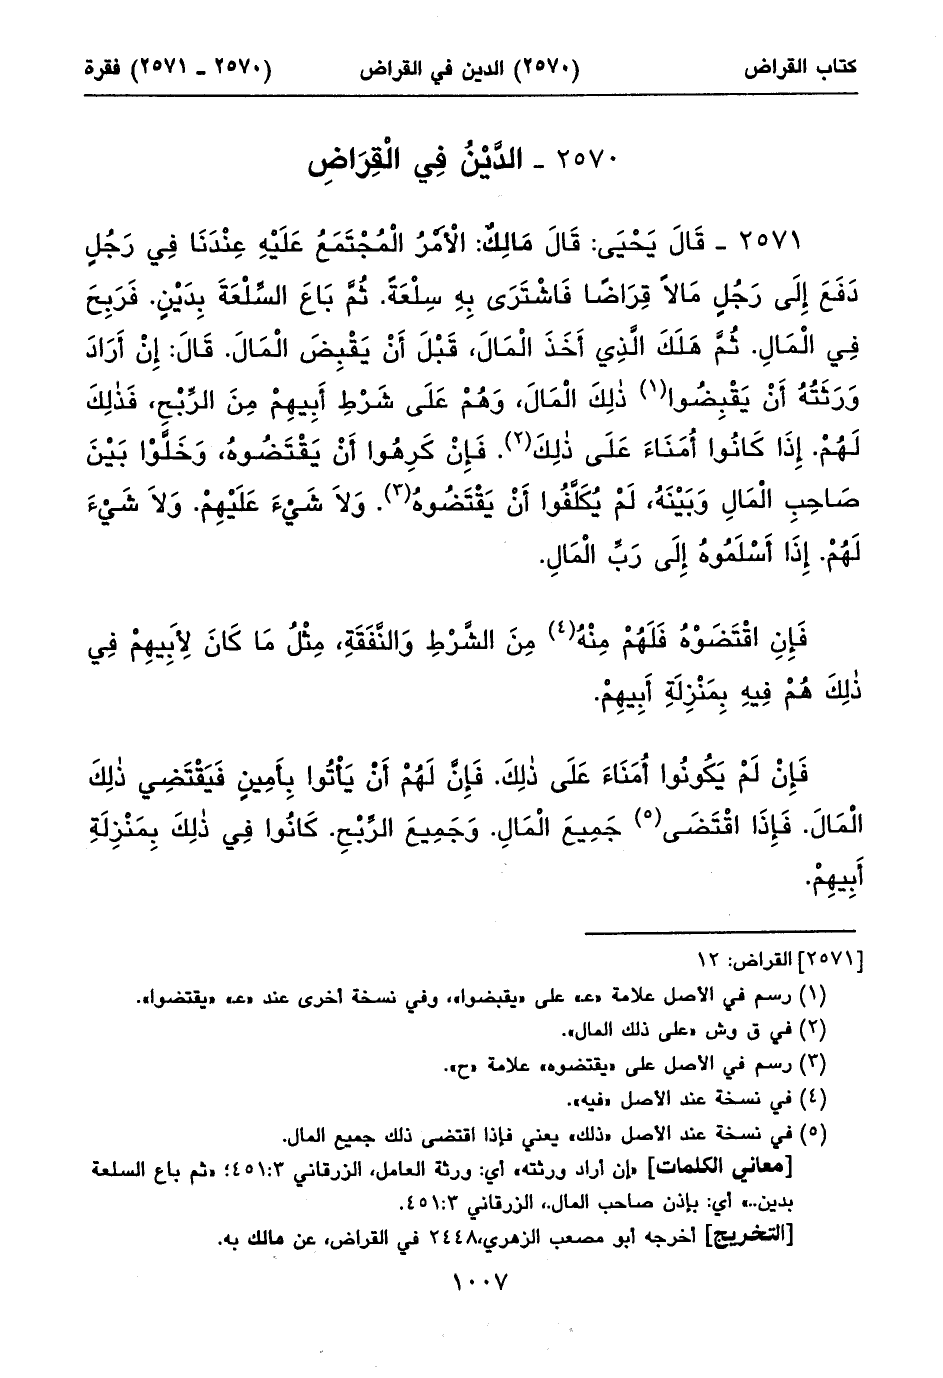 كتاب القراض (٢٥٧٠) الدين في القراض (٢٥٧٠ ـ ٢٥٧١) فقرة
٢٥٧٠ ـ الدَّيْنُ فِي الْقِرَاضِ
٢٥٧١ ـ قَالَ يَحْيَى: قَالَ مَالِكٌ: الْأَمْرُ الْمُجْتَمَعُ عَلَيْهِ عِنْدَنَا فِي رَجُلٍ
دَفَعَ إِلَى رَجُلٍ مَالاً قِرَاضًا فَاشْتَرَى بِهِ سِلْعَةً. ثُمَّ بَاعَ السِّلْعَةَ بِدَيْنٍ. فَرَبِحَ
فِي الْمَالِ. ثُمَّ هَلَكَ الَّذِي أَخَذَ الْمَالَ، قَبْلَ أَنْ يَقْبِضَ الْمَالَ. قَالَ: إِنْ أَرَادَ
وَرَثَتُهُ أَنْ يَقْبِضُوا(١) ذٰلِكَ الْمَالَ، وَهُمْ عَلَى شَرْطِ أَبِيهِمْ مِنَ الرِّبْحِ، فَذٰلِكَ
لَهُمْ. إِذَا كَانُوا أُمَنَاءَ عَلَى ذٰلِكَ(٢). فَإِنْ كَرِهُوا أَنْ يَقْتَضُوهُ، وَخَلَّوْا بَيْنَ
صَاحِبِ الْمَالِ وَبَيْنَهُ، لَمْ يُكَلَّفُوا أَنْ يَقْتَضُوهُ(٣). وَلاَ شَيْءَ عَلَيْهِمْ. وَلاَ شَيْءَ
لَهُمْ. إِذَا أَسْلَمُوهُ إِلَى رَبِّ الْمَالِ.
فَإِنِ اقْتَضَوْهُ فَلَهُمْ مِنْهُ(٤) مِنَ الشَّرْطِ وَالنَّفَقَةِ، مِثْلُ مَا كَانَ لِأَبِيهِمْ فِي
ذٰلِكَ هُمْ فِيهِ بِمَنْزِلَةِ أَبِيهِمْ.
فَإِنْ لَمْ يَكُونُوا أُمَنَاءَ عَلَى ذٰلِكَ. فَإِنَّ لَهُمْ أَنْ يَأْتُوا بِأَمِينٍ فَيَقْتَضِي ذٰلِكَ
الْمَالَ. فَإِذَا اقْتَضَى(٥) جَمِيعَ الْمَالِ. وَجَمِيعَ الرِّبْحِ. كَانُوا فِي ذٰلِكَ بِمَنْزِلَةِ
أَبِيهِمْ.
[٢٥٧١] القراض: ١٢
(١) رسم في الأصل علامة «عـ» على «يقبضوا»، وفي نسخة أخرى عند «عـ» «يقتضوا».
(٢) في ق وش «على ذلك المال».
(٣) رسم في الأصل على «يقتضوه» علامة «ح».
(٤) في نسخة عند الأصل «فيه».
(٥) في نسخة عند الأصل «ذلك» يعني فإذا اقتضى ذلك جميع المال.
[معاني الكلمات] «إن أراد ورثته» أي: ورثة العامل، الزرقاني ٤٥١:٣؛ «ثم باع السلعة
بدين..» أي: بإذن صاحب المال.، الزرقاني ٤٥١:٣.
[التخريج] أخرجه أبو مصعب الزهري،٢٤٤٨ في القراض، عن مالك به.
١٠٠٧